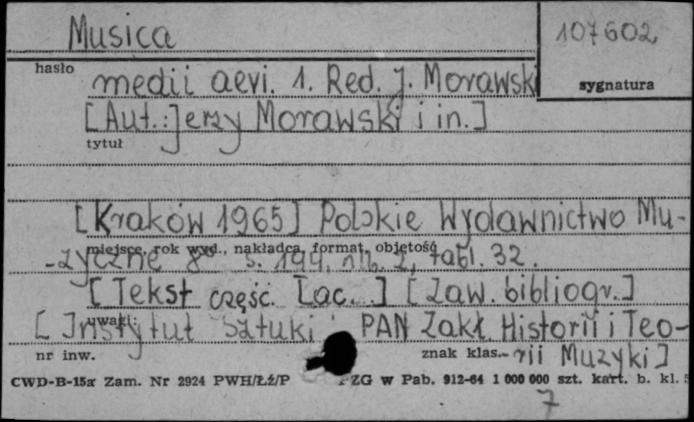 Musica
107602
hasło
sygnatura
medii aevi. 1. Red. J. Morawski
[Aut.: Jerzy Morawski i in.]
tytuł
[Kraków 1965] Polskie Wydawnictwo Mu-
miejsce, rok wyd., nakładca, format, objętość
-zyczne 8° s. 194, nlb. 2, tabl. 32.
[Tekst część. łac. ] [Zaw. bibliogr.]
uwagi:
[Instytut Sztuki PAN Zakł. Historii i Teo-
nr inw.
znak klas.
-rii Muzyki]
CWD-B-15a Zam. Nr 2924 PWH/Łź/P PZG w Pab. 912-64 1 000 000 szt. kart. b. kl.
7